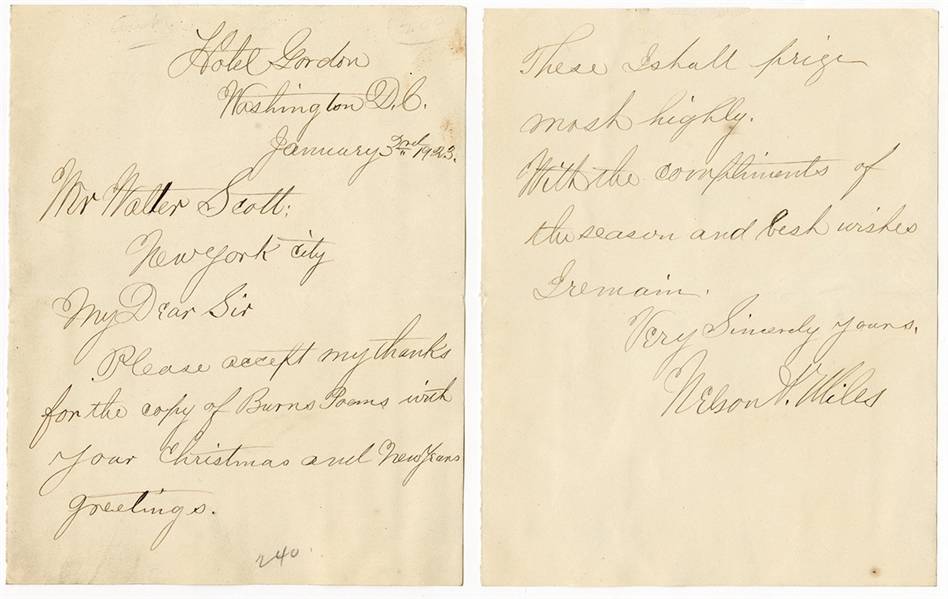 Hotel Gordon
Washington D.C.
January 3rd 1923.
Mr Walter Scott:
New York city
My Dear Sir
Please accept my thanks
for the copy of Burns Poems with
your Christmas and New Years
greetings.
240.
These I shall prize
most highly.
With the compliments of
the season and best wishes
I remain.
Very Sincerely yours,
Nelson A. Miles